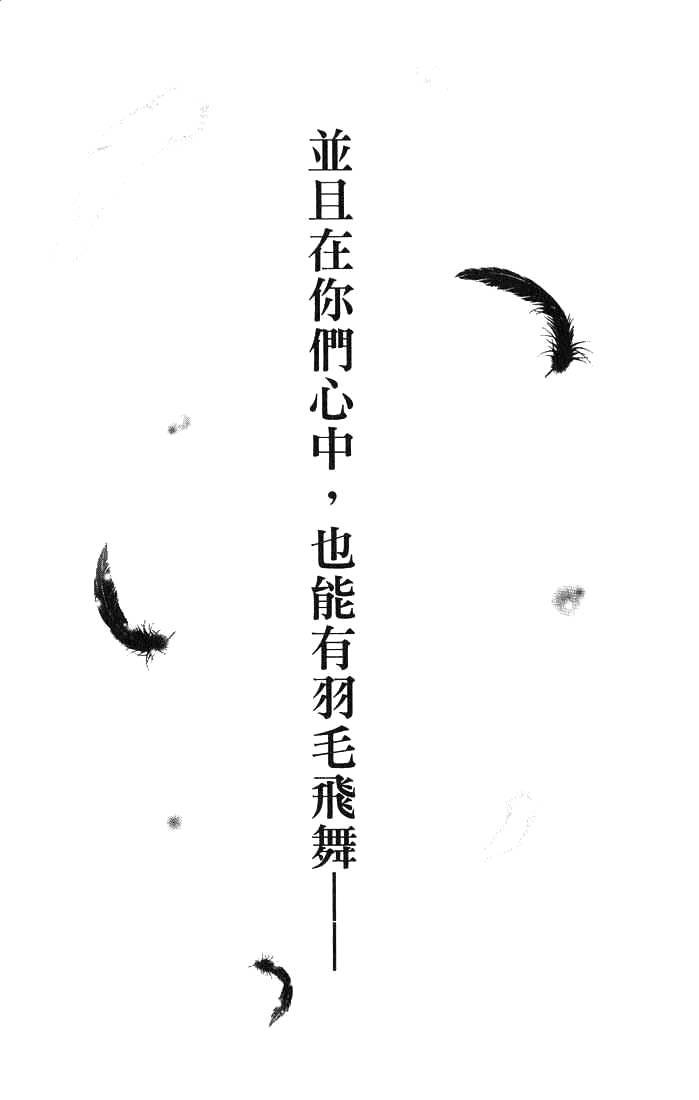 並且在你們心中，也能有羽毛飛舞——